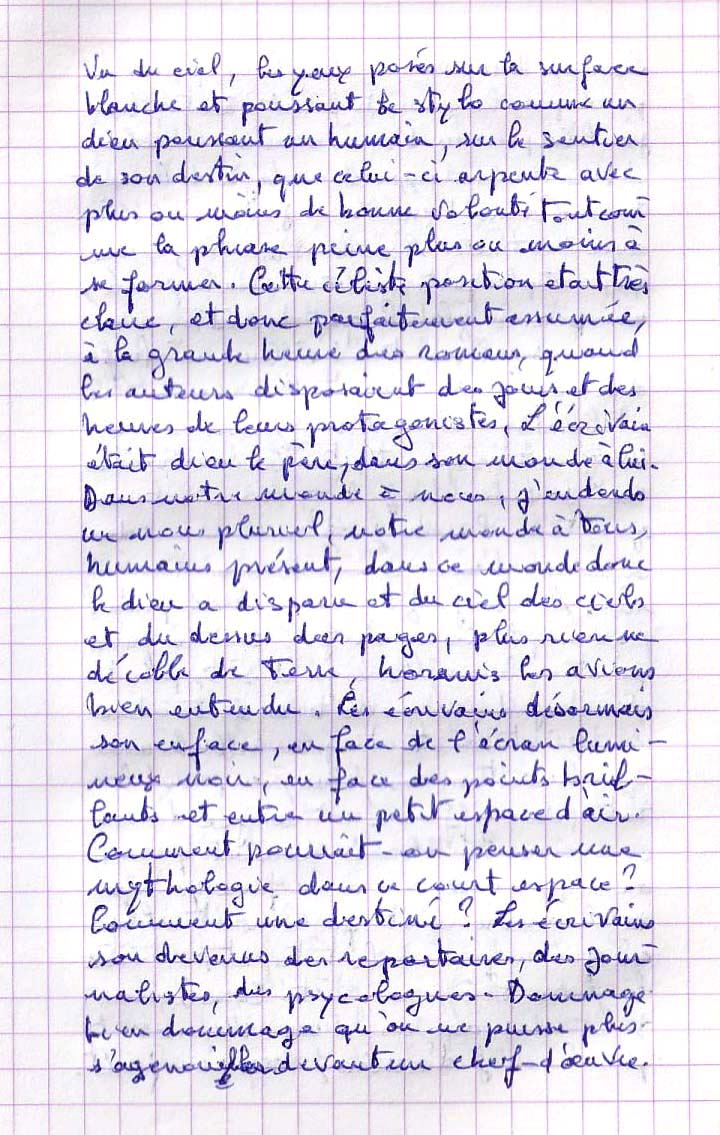 Vu du ciel, les yeux posés sur la surface
blanche et poussant le stylo comme un
dieu poussant un humain, sur le sentier
de son destin, que celui-ci arpente avec
plus ou moins de bonne volonté tout com-
me la phrase peine plus ou moins à
se former. Cette céleste position était très
claire, et donc parfaitement assumée,
à la grande heure des romans, quand
les auteurs disposaient des jours et des
heures de leurs protagonistes. L'écrivain
était dieu le père, dans son monde à lui.
Dans notre monde à nous, j'entends
un nous pluriel, notre monde à tous,
humains présent, dans ce monde donc
le dieu a disparu et du ciel des ciels
et du dessus des pages, plus rien ne
décolle de Terre, hormis les avions
bien entendu. Les écrivains désormais
son en face, en face de l'écran lumi-
neux noir, en face des points bril-
lants et entre un petit espace d'air.
Comment pourrait-on penser une
mythologie dans ce court espace?
Comment une destiné? Les écrivains
son devenus des reportaires, des jour-
nalistes, des psycologues. Dommage
bien dommage qu'on ne puisse plus
s'agenouiller devant un chef-d'œuvre.